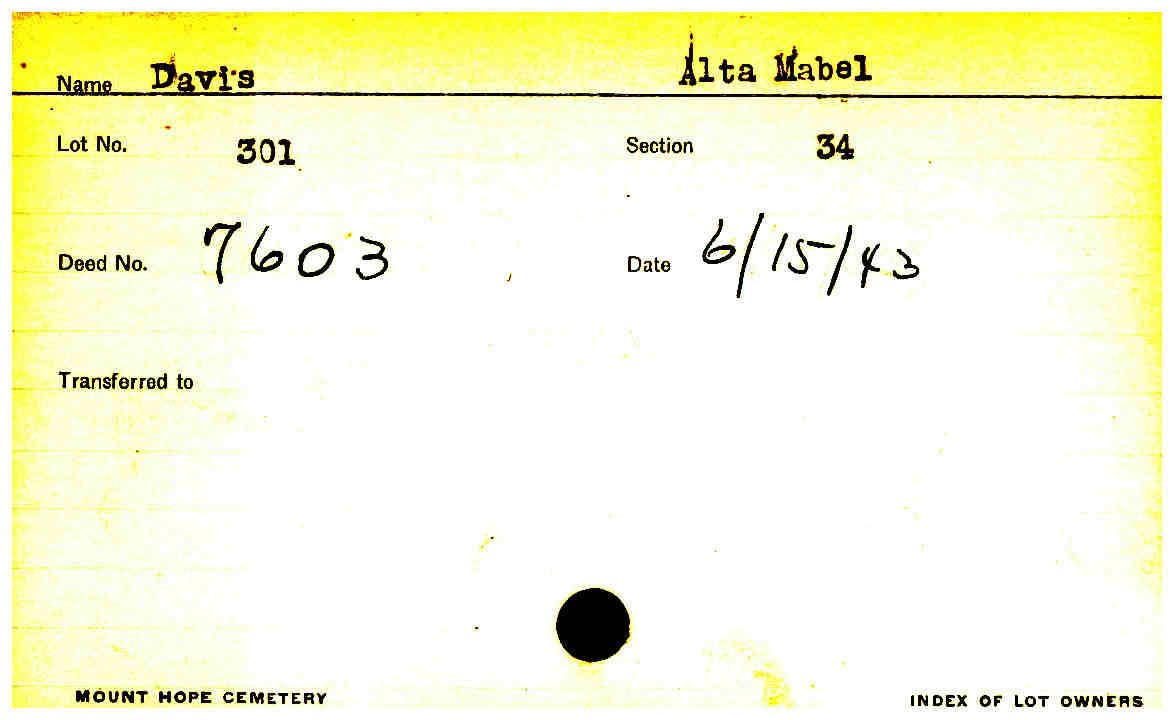 Name Davis Alta Mabel
Lot No. 301 Section 34
Deed No. 7603 Date 6/15/43
Transferred to
MOUNT HOPE CEMETERY INDEX OF LOT OWNERS